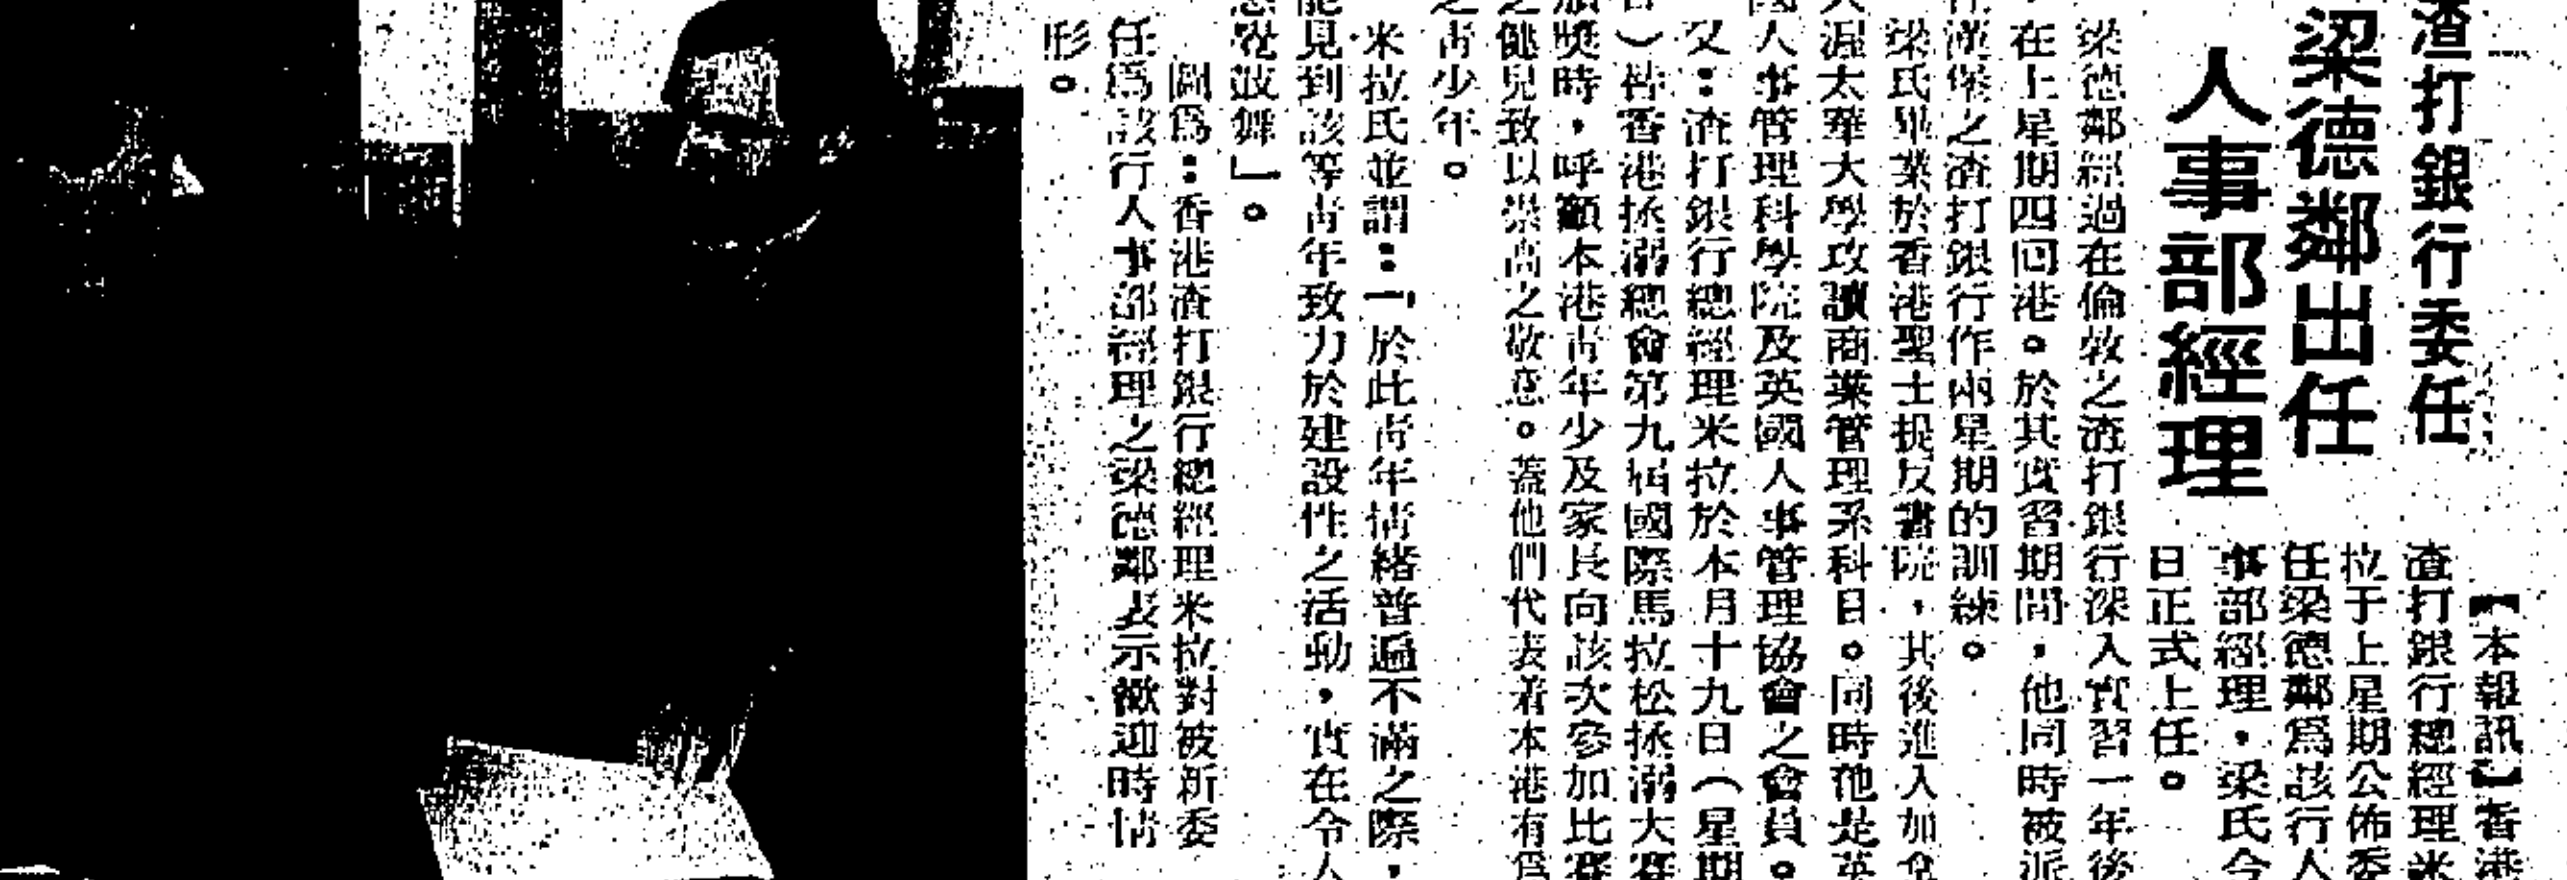 渣打銀行委任
梁德鄰出任
人事部經理
【本報訊】香港
渣打銀行總經理米
拉于上星期公佈委
任梁德鄰爲該行人
事部經理,梁氏今
日正式上任。
梁德鄰經過在倫敦之渣打銀行深入實習一年後
,在上星期四回港。於其實習期間,他同時被派
漢堡之渣打銀行作兩星期的訓練。
梁氏畢業於香港聖士提反書院,其後進入加拿
渥太華大學攻讀商業管理系科目。同時他是英
國人事管理科學院及英國人事管理協會之會員。
又:渣打銀行總經理米拉於本月十九日(星期
日)在香港拯溺總會第九屆國際馬拉松拯溺大賽
頒獎時,呼籲本港青年少及家長向該次參加比賽
之健兒致以崇高之敬意。蓋他們代表着本港有爲
之青少年。
米拉氏並謂:「於此青年情緒普遍不滿之際,
能見到該等青年致力於建設性之活動,實在令人
感覺鼓舞」。
圖爲:香港渣打銀行總經理米拉對被新委
任爲該行人事部經理之梁德鄰表示歡迎時情
形。